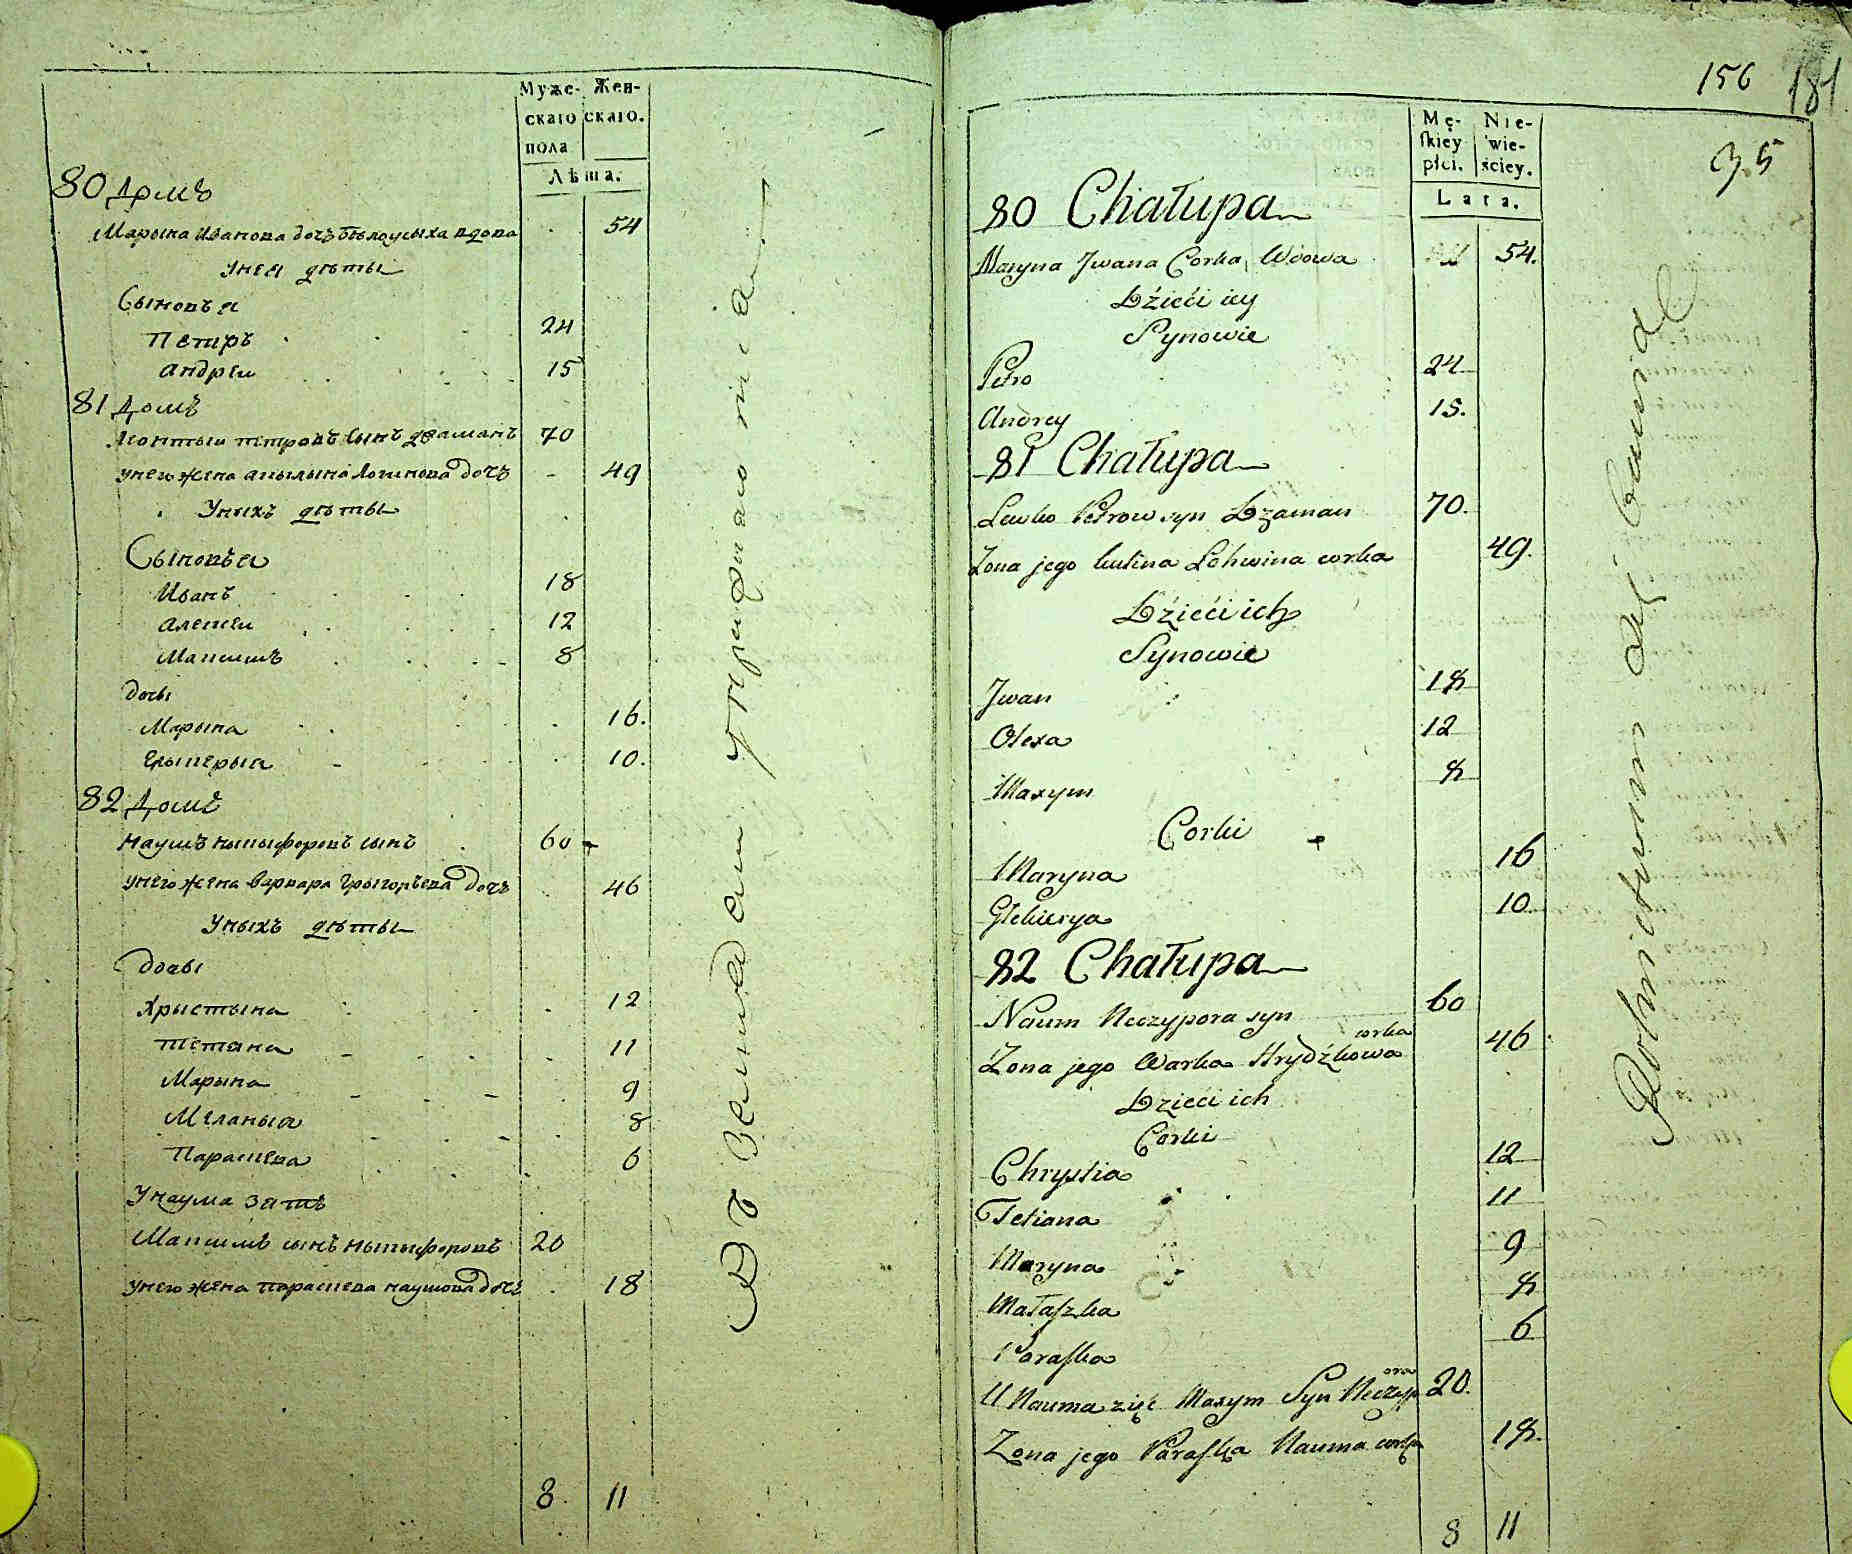 Муже-
скаго
пола
Жен-
скаго.
Лѣта.
80 Домъ
Марына Иванова дочь Белоусыха вдова 54
унея дѣты
Сыновъя
Петръ 24
Андреи 15
81 Домъ
Леонтыи петровъ сынъ 70
унего жена акылына Логинова дочъ 49
Уныхъ дѣты
Сыновъя
Иванъ 18
Алексеи 12
Максимъ 8
дочы
Марына 16.
10.
82 Домъ
Наумъ Ныкыфоровъ сынъ 60
унего жена Варвара Грыгорьева дочъ 46
Уныхъ дѣты
дочы
Хрыстына 12
Тетяна 11
Марына 9
Меланыя 8
Параскева 6
Унаума зять
Максимъ сынъ Ныкыфоровъ 20
унего жена параскева наумова дочь 18
8. 11
156 181
35
Mę-
skiey
płci.
Nie-
wie-
ściey.
Lata.
80 Chałupa
Maryna Jwana Corka, Wdowa 54.
Dzieci iey
Synowie
Petro 24
Andrey 15.
81 Chałupa
Lewko Petrow syn Dzaman 70.
Zona jego Kulina Lohwina corka 49.
Dzieci ich
Synowie
Jwan 18
Olexa 12
Maxym 8
Corki
Maryna 16
Glekierya 10
82 Chałupa
Naum Neczypora syn 60
Żona jego Warka Hrydźkowa corka 46
Dzieci ich
Corki
Chrystia 12
Tetiana 11
Maryna 9
Małaszka 8
Paraska 6
U Nauma zięć Maxym Syn Neczypora 20.
Zona jego Paraska Nauma corka 18.
8 11